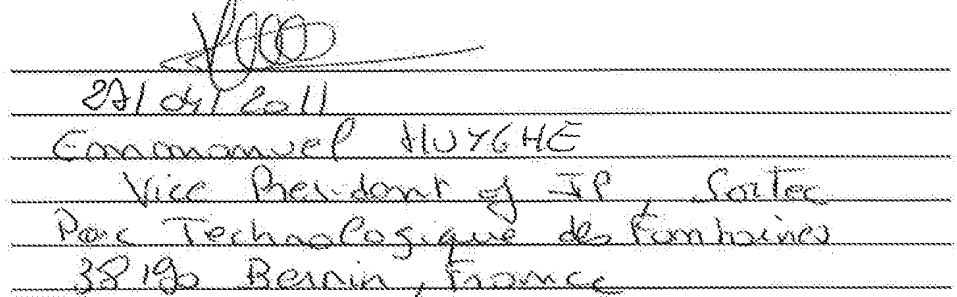 Emmanuel HUYGHE
Vice President of IP, Soitec
Parc Technologique des Fontaines
38190 Bernin, France